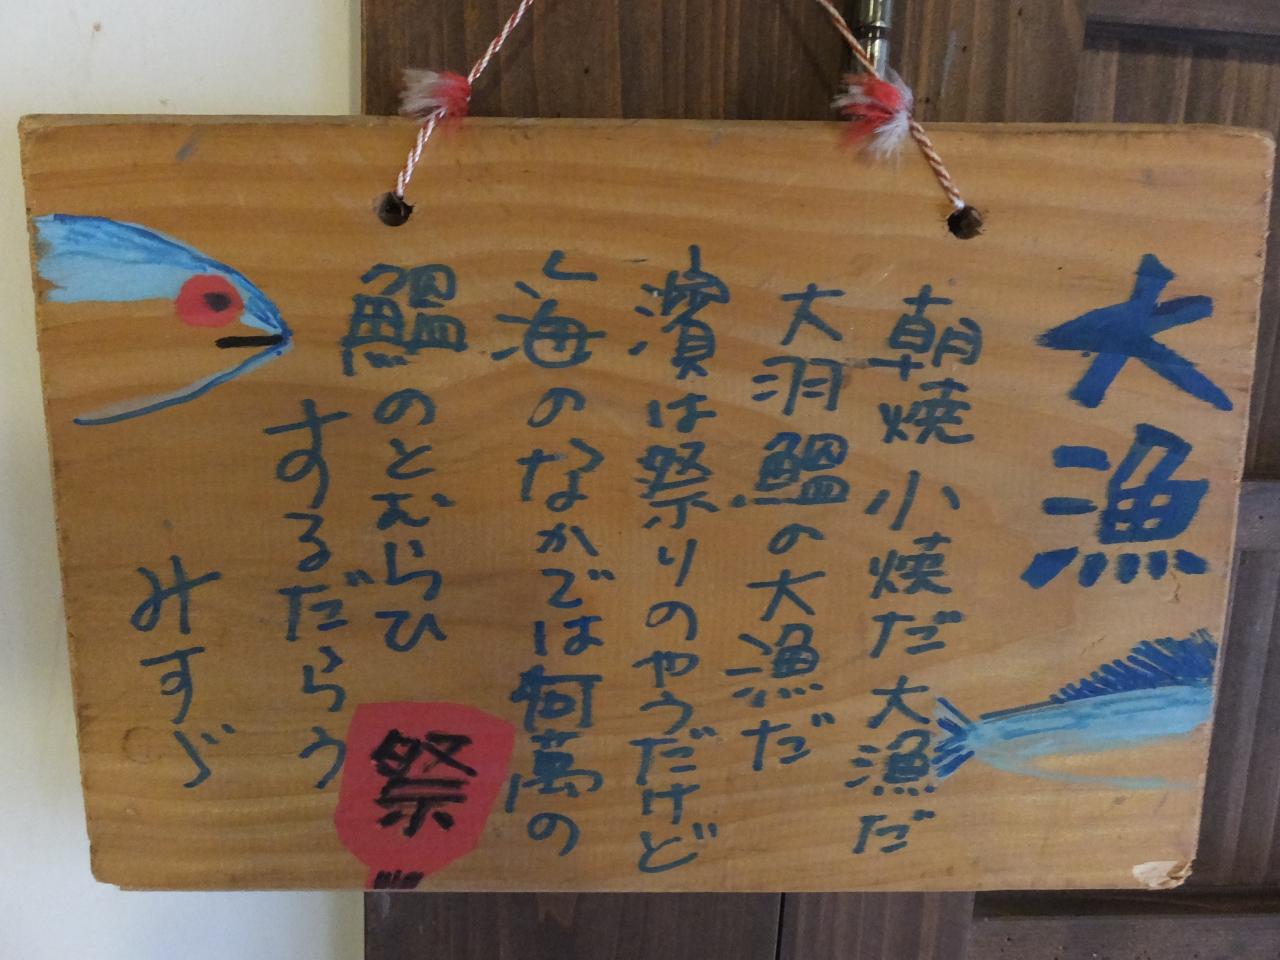 大漁
朝焼小焼だ大漁だ
大羽鰮の大漁だ
濱は祭りのやうだけど
海のなかでは何萬の
鰮のとむらひ
するだらう
みすゞ
祭